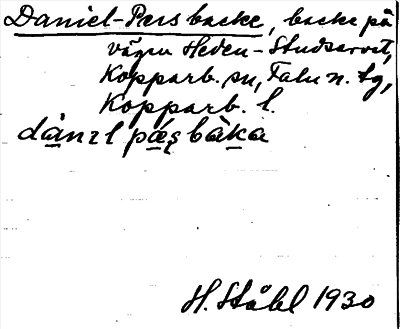 Daniel-Pers backe, backe på
vägen Heden-Studsarvet,
Kopparb. sn, Falu n. tg,
Kopparb. l.
dànɪl pæ̀ʂbàka
H. Ståhl 1930